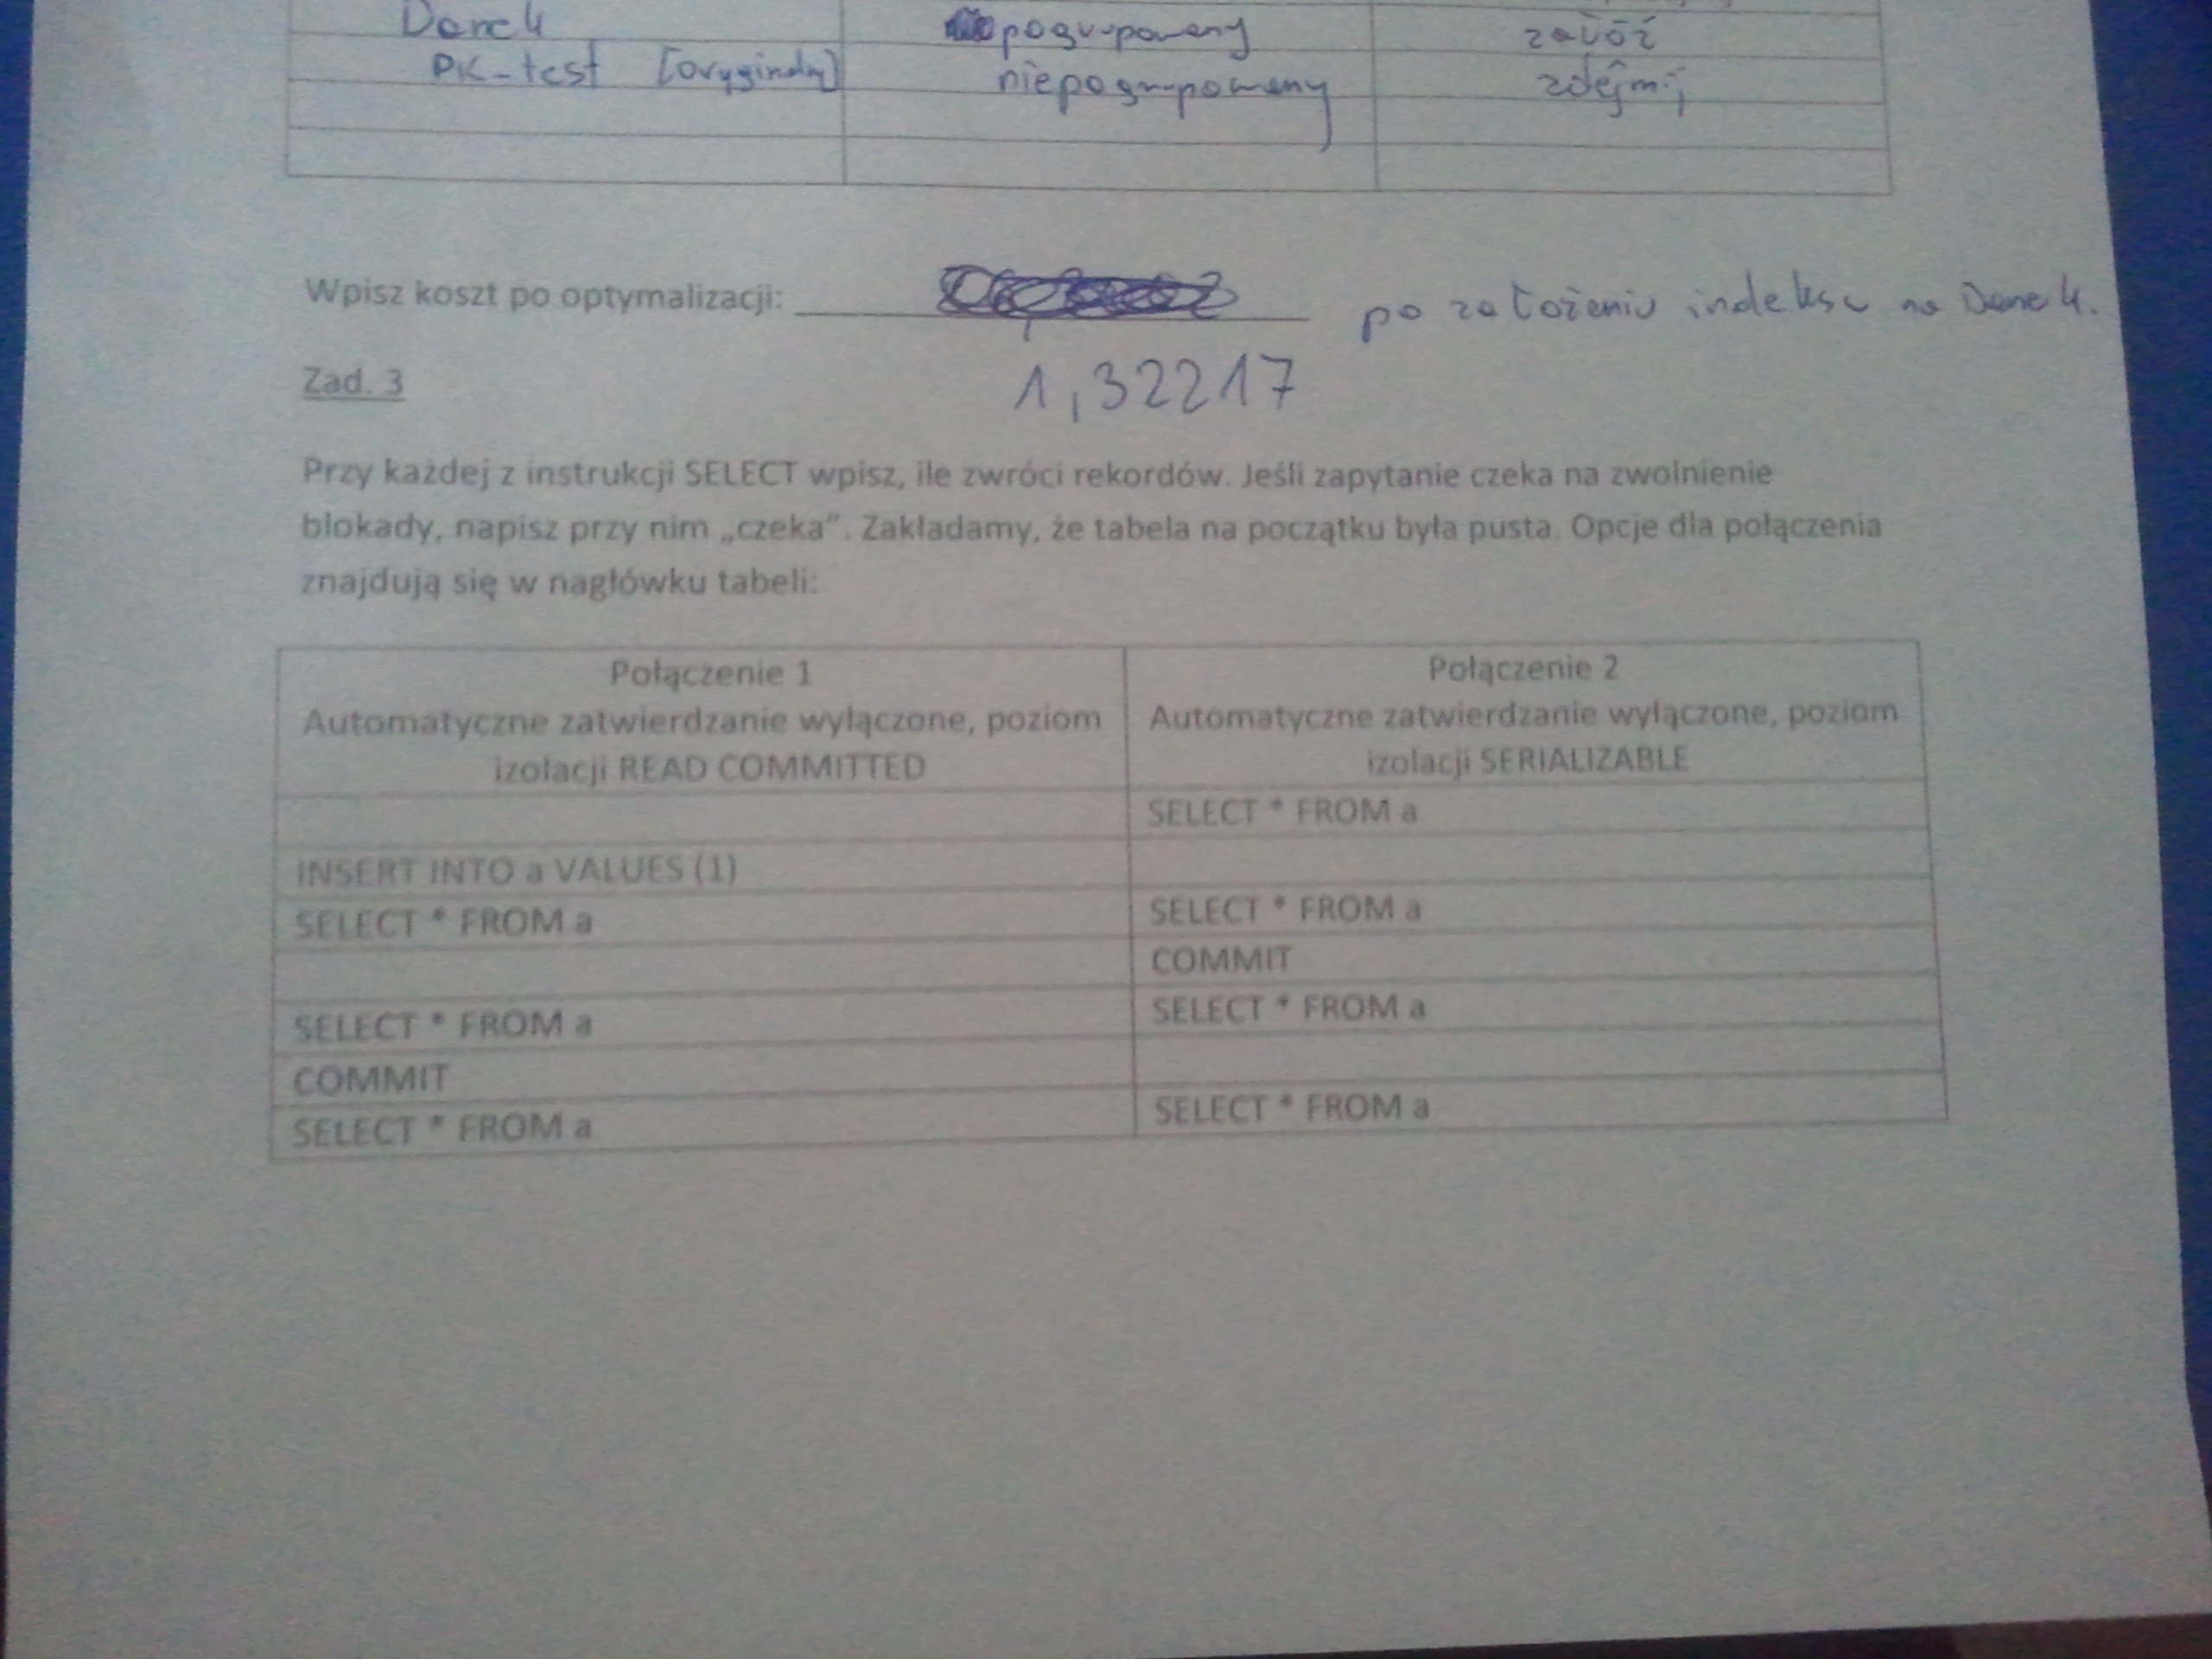 Dane4 pogrupowany załóż
PK_test [oryginalny] niepogrupowany zdejmij
Wpisz koszt po optymalizacji: po założeniu indeksu na Dane4.
1,32217
Zad. 3
Przy każdej z instrukcji SELECT wpisz, ile zwróci rekordów. Jeśli zapytanie czeka na zwolnienie
blokady, napisz przy nim „czeka”. Zakładamy, że tabela na początku była pusta. Opcje dla połączenia
znajdują się w nagłówku tabeli:
Połączenie 1 Połączenie 2
Automatyczne zatwierdzanie wyłączone, poziom Automatyczne zatwierdzanie wyłączone, poziom
izolacji READ COMMITTED izolacji SERIALIZABLE
SELECT * FROM a
INSERT INTO a VALUES (1)
SELECT * FROM a SELECT * FROM a
COMMIT
SELECT * FROM a SELECT * FROM a
COMMIT
SELECT * FROM a SELECT * FROM a